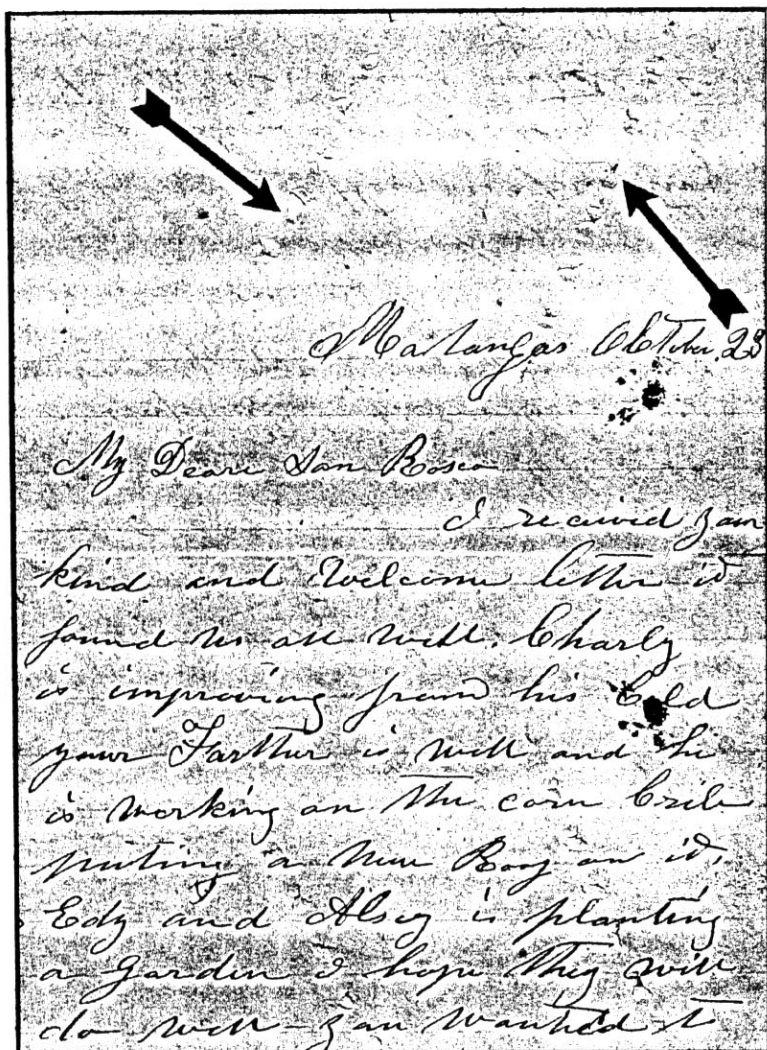 Matangas October 23
My Deare Son Rosco
I received your
kind and Welcome letter it
found us all well. Charly
is improving from his Cold
your Farther is well and he
is working on the corn Crib
puting a new Roof on it,
Edy and is planting
a Garden I hope they will
do well - you wanted to